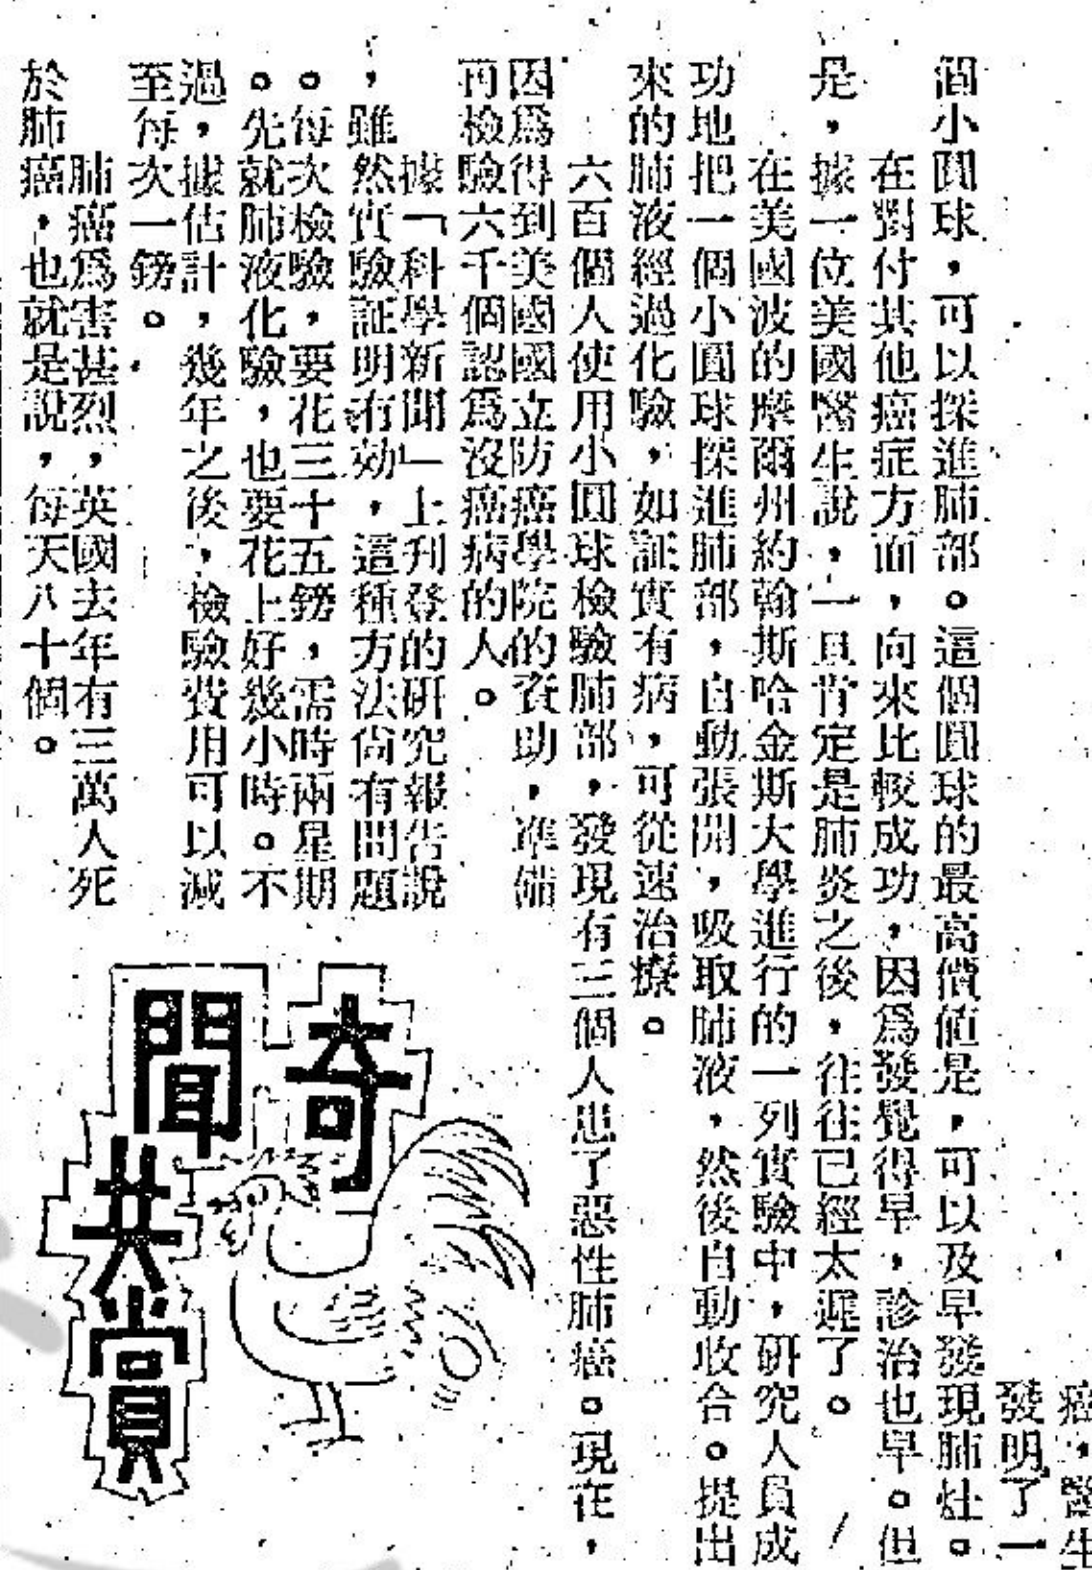 癌，醫生
發明了一
個小圓球，可以探進肺部。這個圓球的最高價值是，可以及早發現肺灶。
在對付其他癌症方面，向來比較成功，因爲發覺得早，診治也早。但
是，據一位美國醫生說，一旦肯定是肺炎之後，往往已經太遲了。
在美國波的摩爾州約翰斯哈金斯大學進行的一列實驗中，研究人員成
功地把一個小圓球探進肺部，自動張開，吸取肺液，然後自動收合。提出
來的肺液經過化驗，如証實有病，可從速治療。
六百個人使用小圓球檢驗肺部，發現有三個人患了惡性肺癌。現在，
因爲得到美國國立防癌學院的資助，準備
再檢驗六千個認爲沒癌病的人。
據「科學新聞」上刋登的研究報告說
，雖然實驗証明有効，這種方法尙有問題
。每次檢驗，要花三十五鎊，需時兩星期
。先就肺液化驗，也要花上好幾小時。不
過，據估計，幾年之後，檢驗費用可以減
至每次一鎊。
肺癌爲害甚烈，英國去年有三萬人死
於肺癌，也就是說，每天八十個。
奇聞共賞